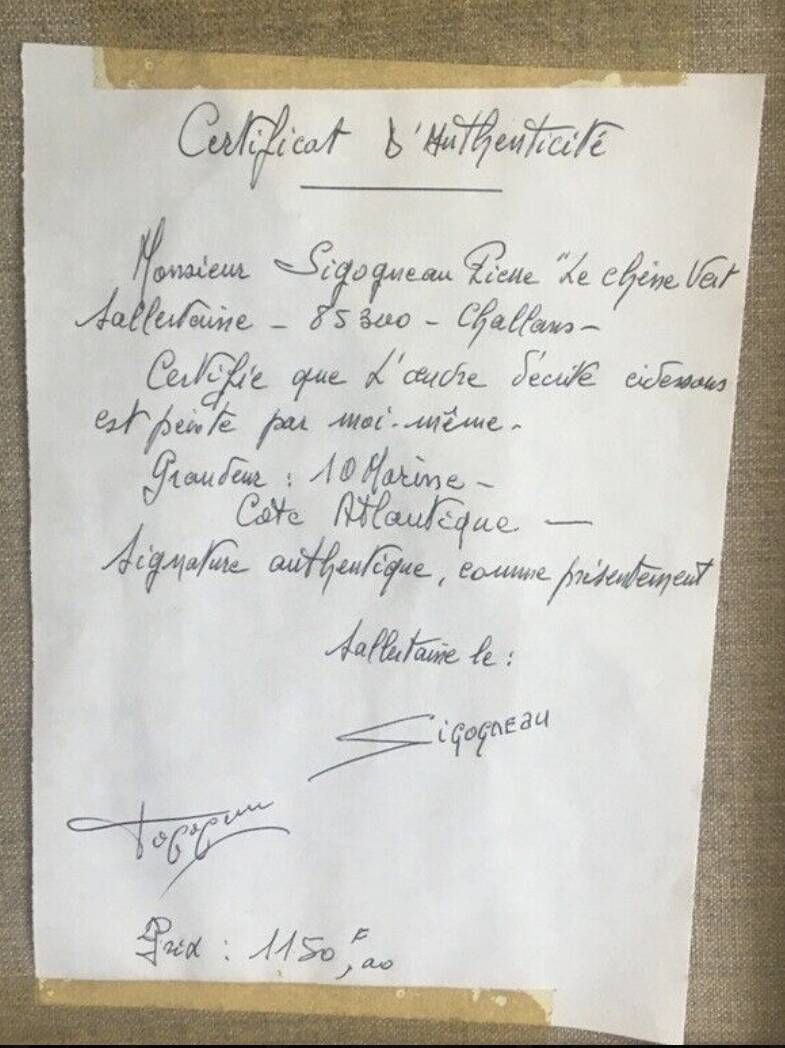 Certificat D'Authenticité
Monsieur Sigogneau Pierre "Le chêne Vert
Sallertaine - 85300 - Challans -
Certifie que L'œuvre décrite cidessous
est peinte par moi-même.
Grandeur : 10 Marine -
Côte Atlantique —
Signature authentique, comme présentement
Sallertaine le :
SIGOGNEAU
Prix : 1150F,00